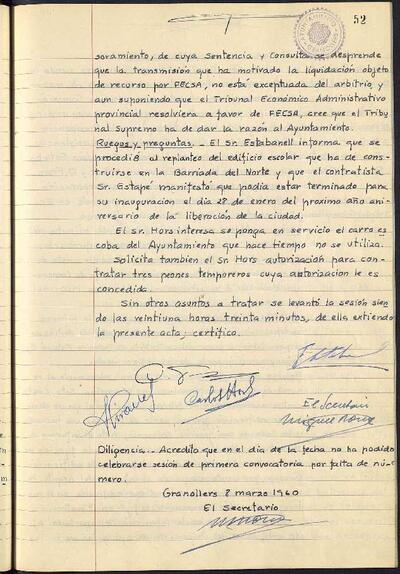 52
soramiento, de cuya Sentencia y Consulta se desprende
que la transmisión que ha motivado la liquidación objeto
de recurso por FECSA, no está exceptuada del arbitrio, y
aun suponiendo que el Tribunal Económico Administrativo
provincial resolviera a favor de FECSA, cree que el Tribu
nal Supremo ha de dar la razón al Ayuntamiento.
Ruegos y preguntas._ El Sr. Estabanell informa que se
procedió al replanteo del edificio escolar que ha de cons-
truirse en la Barriada del Norte y que el contratista
Sr. Estapé manifestó que podia estar terminado para
su inauguración el dia 28 de enero del proximo año ani-
versario de la liberación de la ciudad.
El Sr. Hors interesa se ponga en servicio el carro es
coba del Ayuntamiento que hace tiempo no se utiliza.
Solicita tambien el Sr. Hors autorización para con-
tratar tres peones temporeros cuya autorizacion le es
concedida.
Sin otros asuntos a tratar se levantó la sesión sien
do las veintiuna horas treinta minutos, de ella extiendo
la presente acta; certifico.
El Secretario
Diligencia._ Acredito que en el dia de la fecha no ha podido
celebrarse sesión de primera convocatoria por falta de nú-
mero.
Granollers 8 marzo 1960
El Secretario